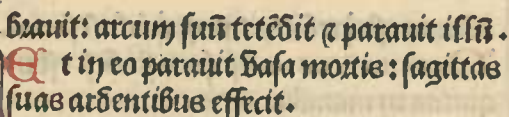 brauit: arcum suū tetēdit ⁊ parauit illū.
Et in eo parauit vasa mortis: sagittas
suas ardentibus effecit.